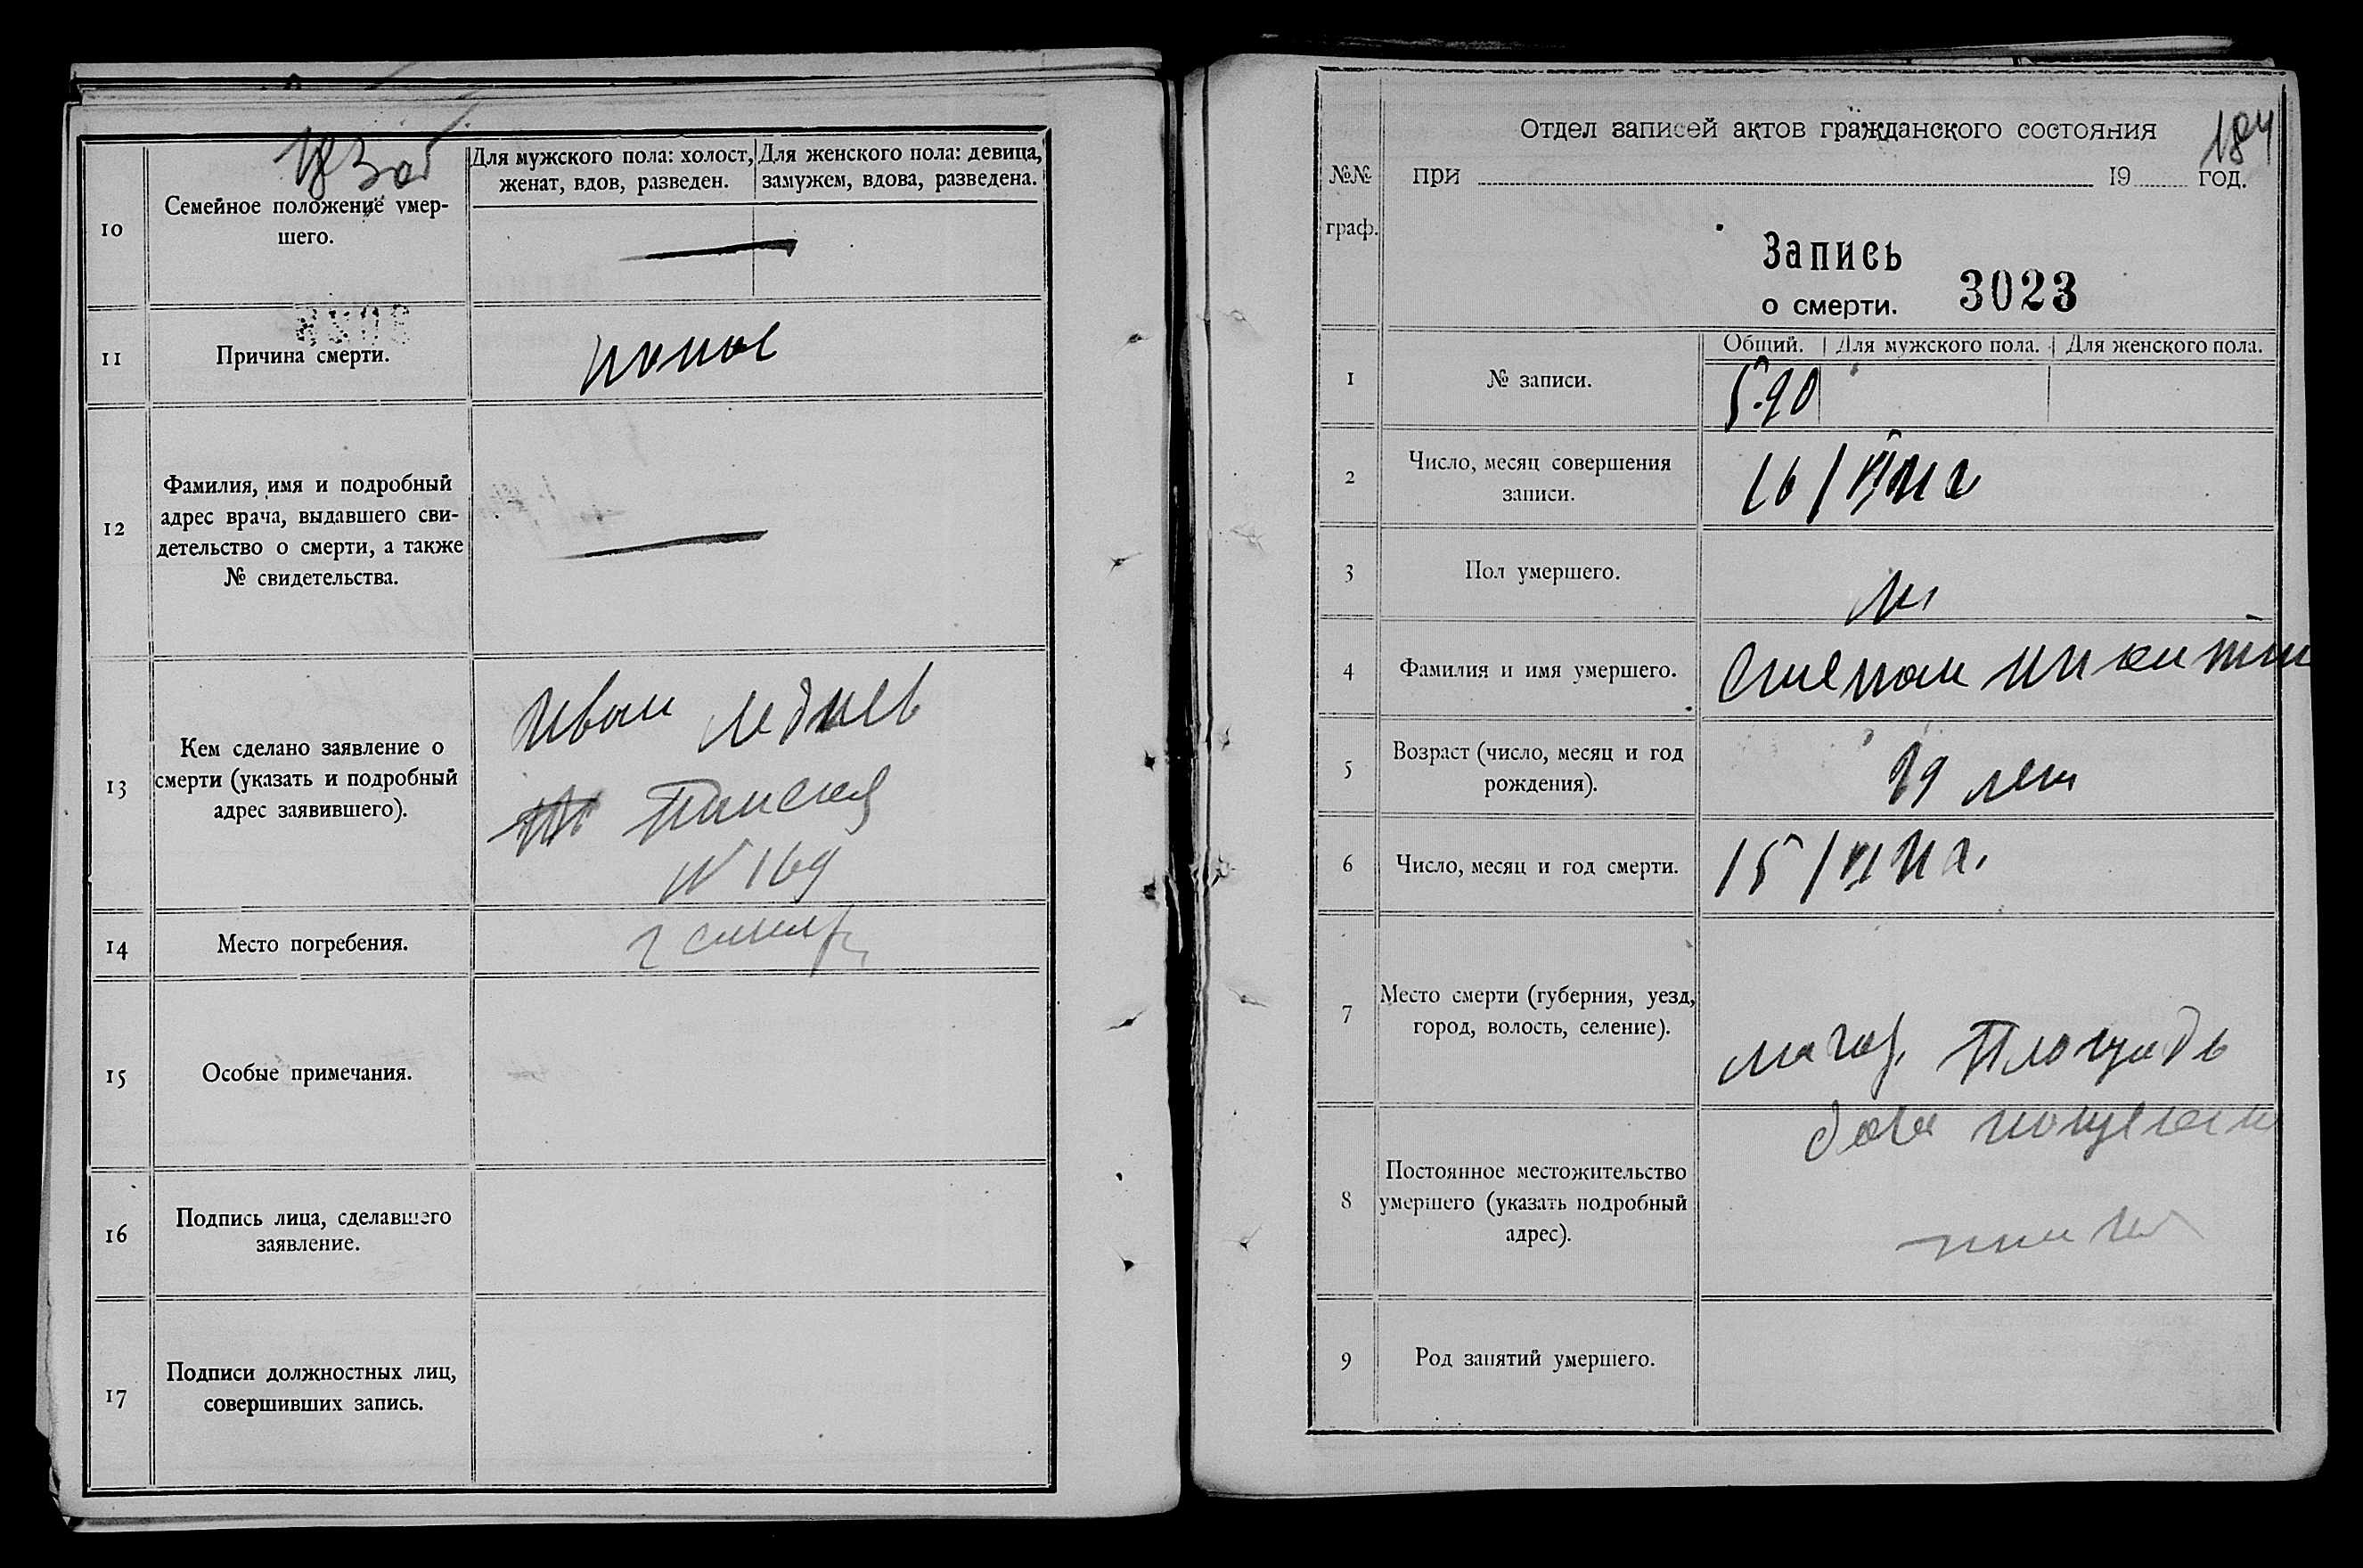 10
Семейное положение умер-
шего.
Для мужского пола: холост,
женат, вдов, разведен.
Для женского пола: девица,
замужем, вдова, разведена.
11
Причина смерти.
понос
12
Фамилия, имя и подробный
адрес врача, выдавшего сви-
детельство о смерти, а также
№ свидетельства.
13
Кем сделано заявление о
смерти (указать и подробный
адрес заявившего).
Иван
N 169
14
Место погребения.
15
Особые примечания.
16
Подпись лица, сделавшего
заявление.
17
Подписи должностных лиц,
совершивших запись.
184
Отдел записей актов гражданского состояния
№№
граф.
при 19 год.
Запись
о смерти.
3023
Общий. Для мужского пола. Для женского пола.
1
№ записи.
590
2
Число, месяц совершения
записи.
16/VI
3
Пол умершего.
м
4
Фамилия и имя умершего.
Степан Никитин
5
Возраст (число, месяц и год
рождения).
лет
6
Число, месяц и год смерти.
15/VI
7
Место смерти (губерния, уезд,
город, волость, селение).
площадь
8
Постоянное местожительство
умершего (указать подробный
адрес).
9
Род занятий умершего.